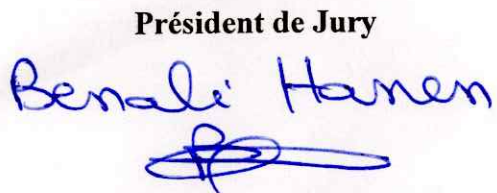 Président de Jury
Benali Hanen